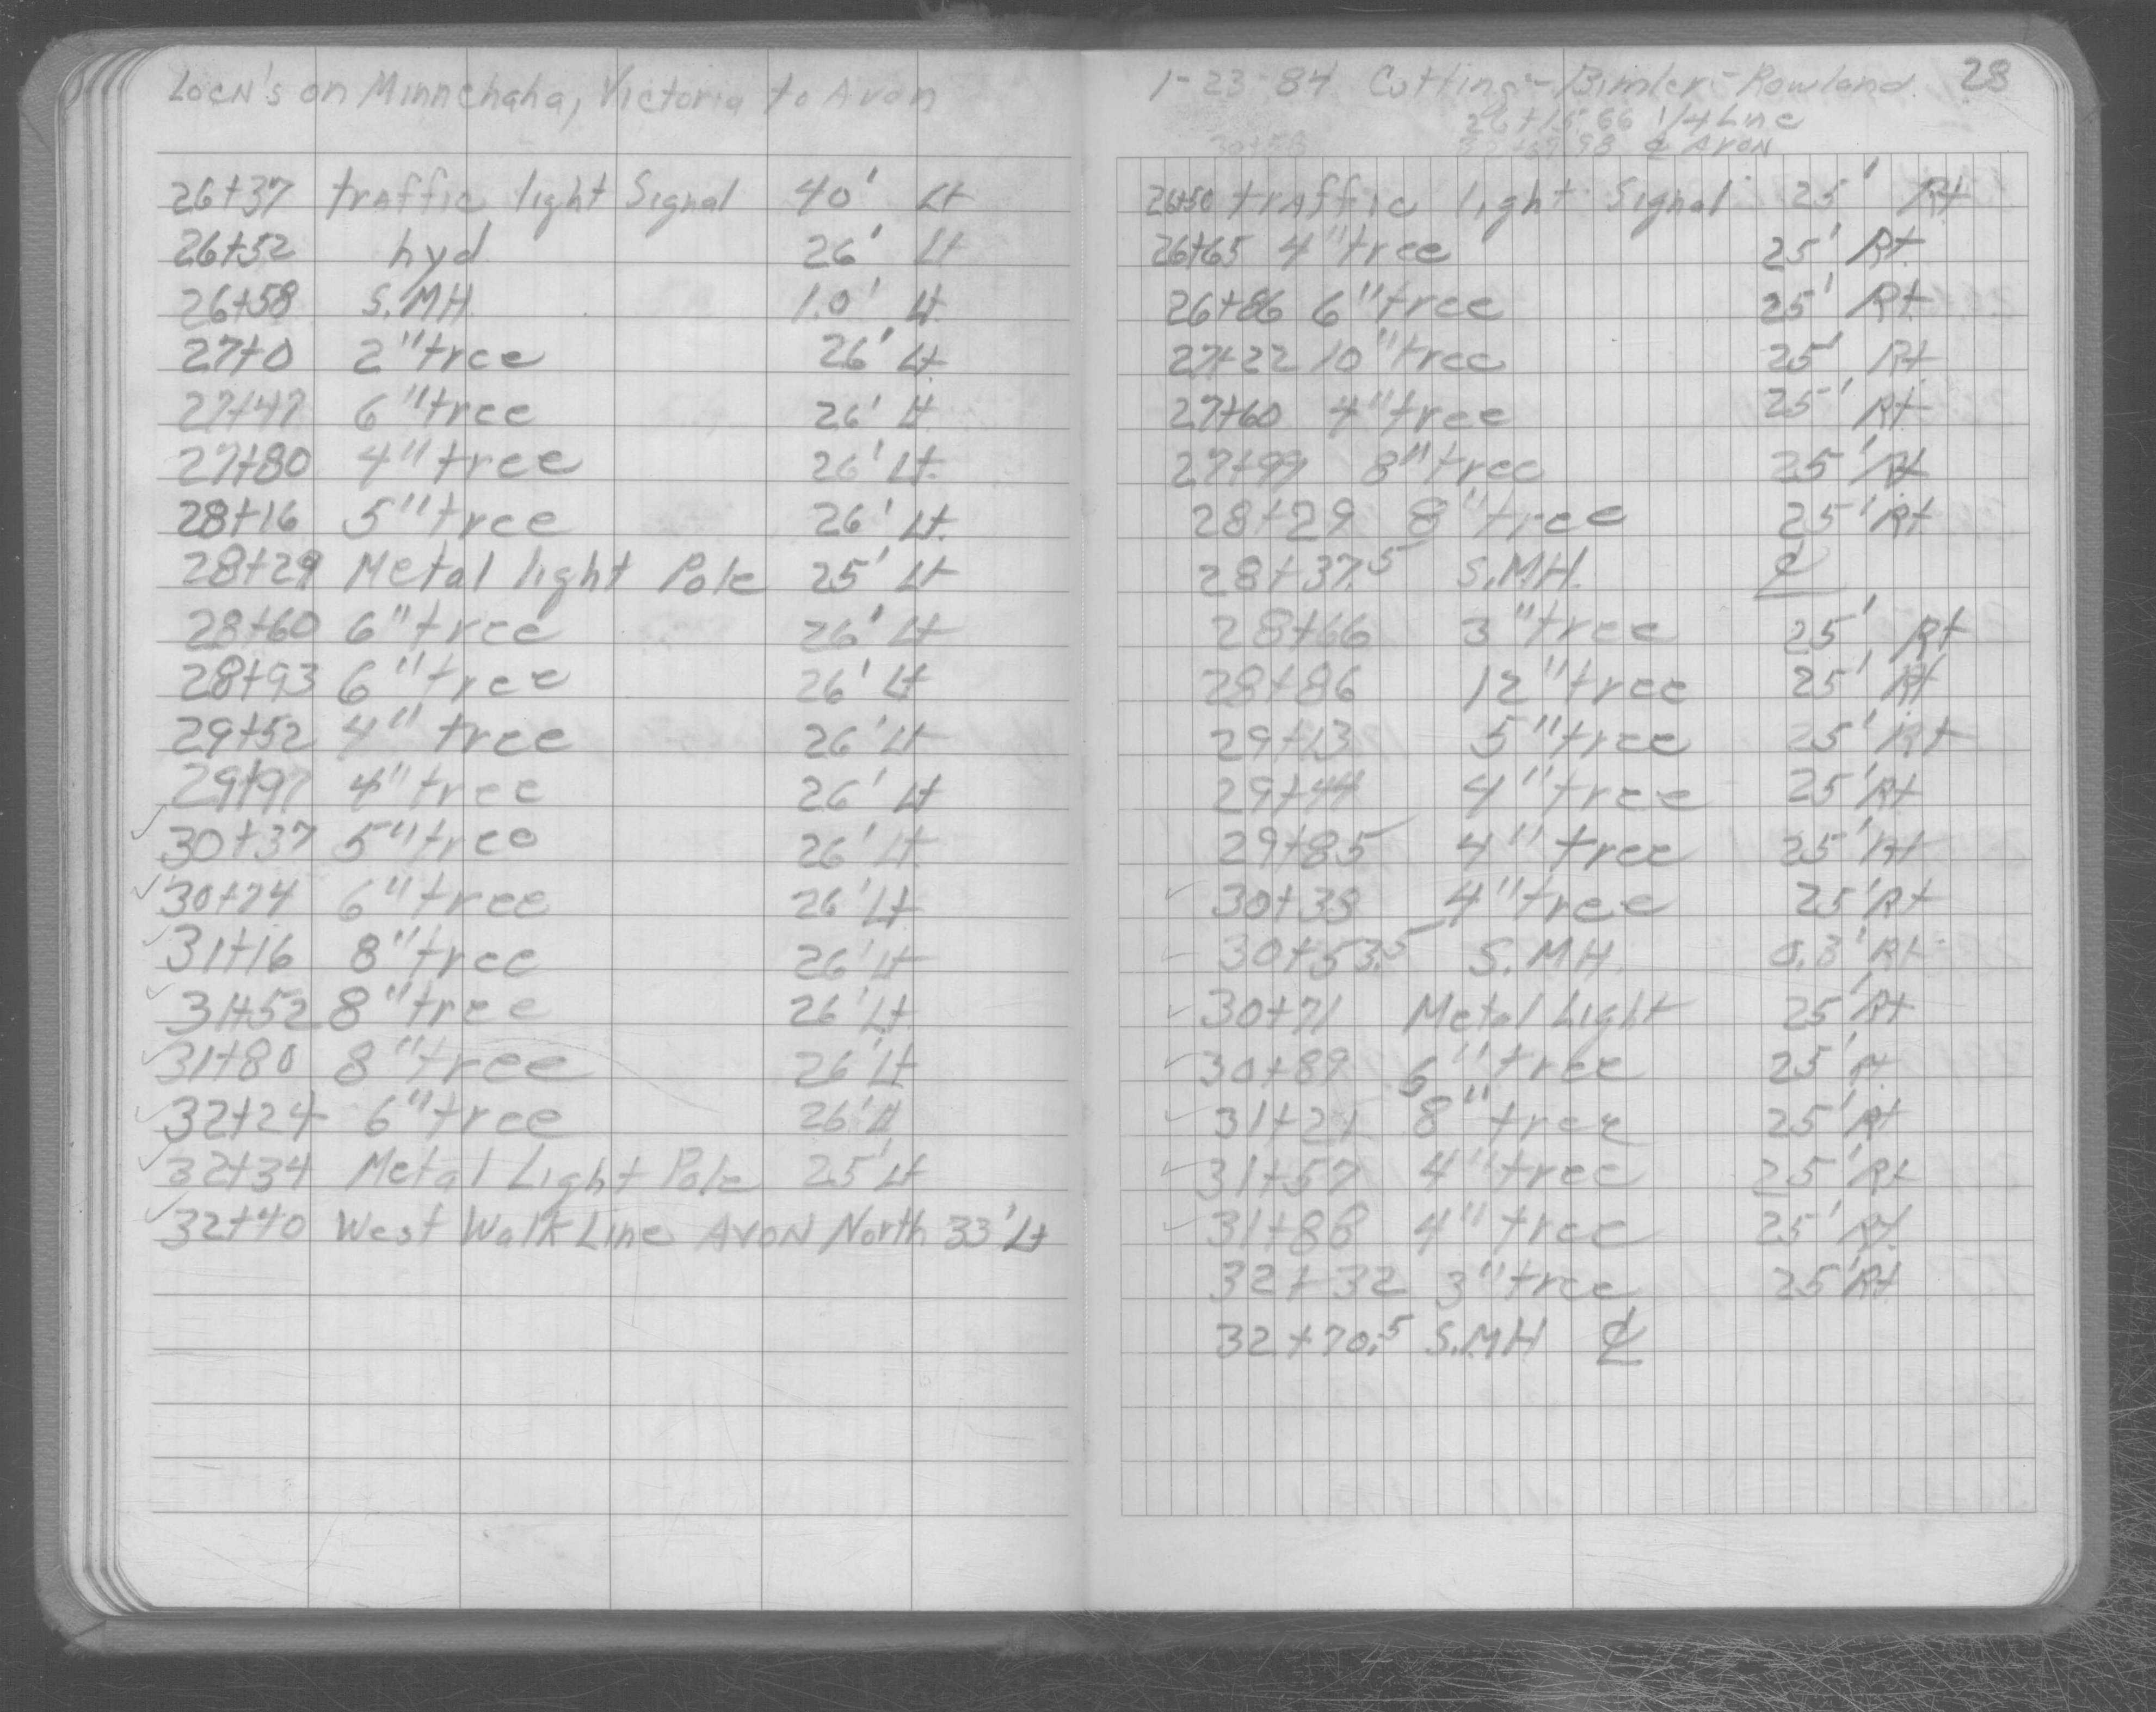 Locn's on Minnehaha, Victoria to Avon
26+37 traffic light Signal 40' Lt
26+52 hyd 26' Lt
26+58 S.MH 1.0' Lt
27+0 2" tree 26' Lt
27+47 6" tree 26' Lt
27+80 4" tree 26' Lt.
28+16 5" tree 26' Lt.
28+29 Metal light Pole 25' Lt
28+60 6" tree 26' Lt
28+93 6" tree 26' Lt
29+52 4" tree 26' Lt
29+97 4" tree 26' Lt
✓ 30+37 5" tree 26' Lt
✓ 30+74 6" tree 26' Lt
✓ 31+16 8" tree 26' Lt
✓ 31+52 8" tree 26' Lt
✓ 31+80 8" tree 26' Lt
✓ 32+24 6" tree 26' Lt
✓ 32+34 Metal Light Pole 25' Lt
✓ 32+40 West Walk Line AVON North 33' Lt
1-23-84 Cotting - Bimler - Rowland 28
1/4 Line
℄ AVON
26+50 traffic light Signal 25' Rt
26+65 4" tree 25' Rt
26+86 6" tree 25' Rt
27+22 10" tree 25' Rt
27+60 4" tree 25' Rt
27+99 8" tree 25' Rt
28+29 8" tree 25' Rt
28+37.5 S.MH. ℄
28+66 3" tree 25' Rt
28+86 12" tree 25' Rt
29+13 5" tree 25' Rt
29+44 4" tree 25' Rt
29+85 4" tree 25' Rt
✓ 30+38 4" tree 25' Rt
✓ 30+53.5 S.MH. 0.3' Rt
✓ 30+71 Metal Light 25' Rt
✓ 30+89 6" tree 25' Rt
✓ 31+21 8" tree 25' Rt
✓ 31+57 4" tree 25' Rt
✓ 31+88 4" tree 25' Rt
32+32 3" tree 25' Rt
32+70.5 S.MH ℄